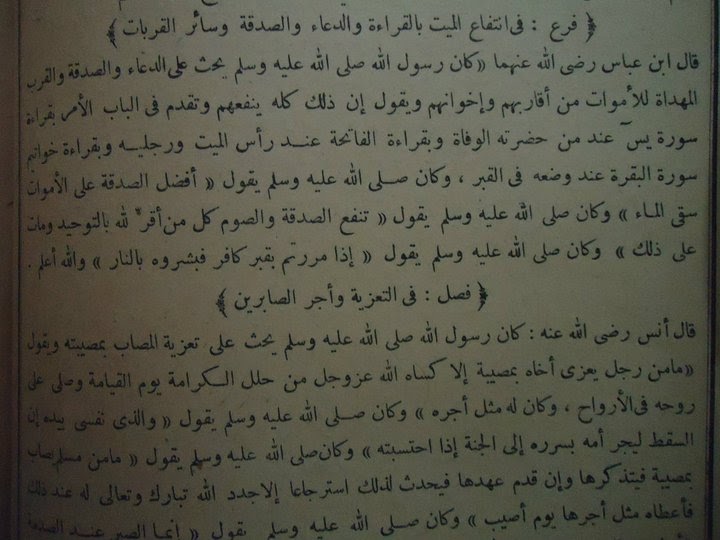 ﴿ فرع : فى انتفاع الميت بالقراءة والدعاء والصدقة وسائر القربات ﴾
قال ابن عباس رضى الله عنهما «كان رسول الله صلى الله عليه وسلم يحث على الدعاء والصدقة والقرب
المهداة للأموات من أقاربهم وإخوانهم ويقول إن ذلك كله ينفعهم وتقدم فى الباب الأمر بقراءة
سورة يسٓ عند من حضرته الوفاة وبقراءة الفاتحة عند رأس الميت ورجليه وبقراءة خواتيم
سورة البقرة عند وضعه فى القبر ، وكان صلى الله عليه وسلم يقول « أفضل الصدقة على الأموات
سقى الماء » وكان صلى الله عليه وسلم يقول « تنفع الصدقة والصوم كل من أقر لله بالتوحيد ومات
على ذلك » وكان صلى الله عليه وسلم يقول « إذا مررتم بقبر كافر فبشروه بالنار » والله أعلم .
﴿ فصل : فى التعزية وأجر الصابرين ﴾
قال أنس رضى الله عنه : كان رسول الله صلى الله عليه وسلم يحث على تعزية المصاب بمصيبته ويقول
«مامن رجل يعزى أخاه بمصيبة إلا كساه الله عزوجل من حلل الكرامة يوم القيامة وصلى على
روحه فى الأرواح ، وكان له مثل أجره » وكان صلى الله عليه وسلم يقول « والذى نفسى بيده إن
السقط ليجر أمه بسرره إلى الجنة إذا احتسبته » وكان صلى الله عليه وسلم يقول « مامن مسلم يصاب
بمصيبة فيتذكرها وإن قدم عهدها فيحدث لذلك استرجاعا إلا جدد الله تبارك وتعالى له عند ذلك
فأعطاه مثل أجرها يوم أصيب » وكان صلى الله عليه وسلم يقول « إنما الصبر عند الصدمة